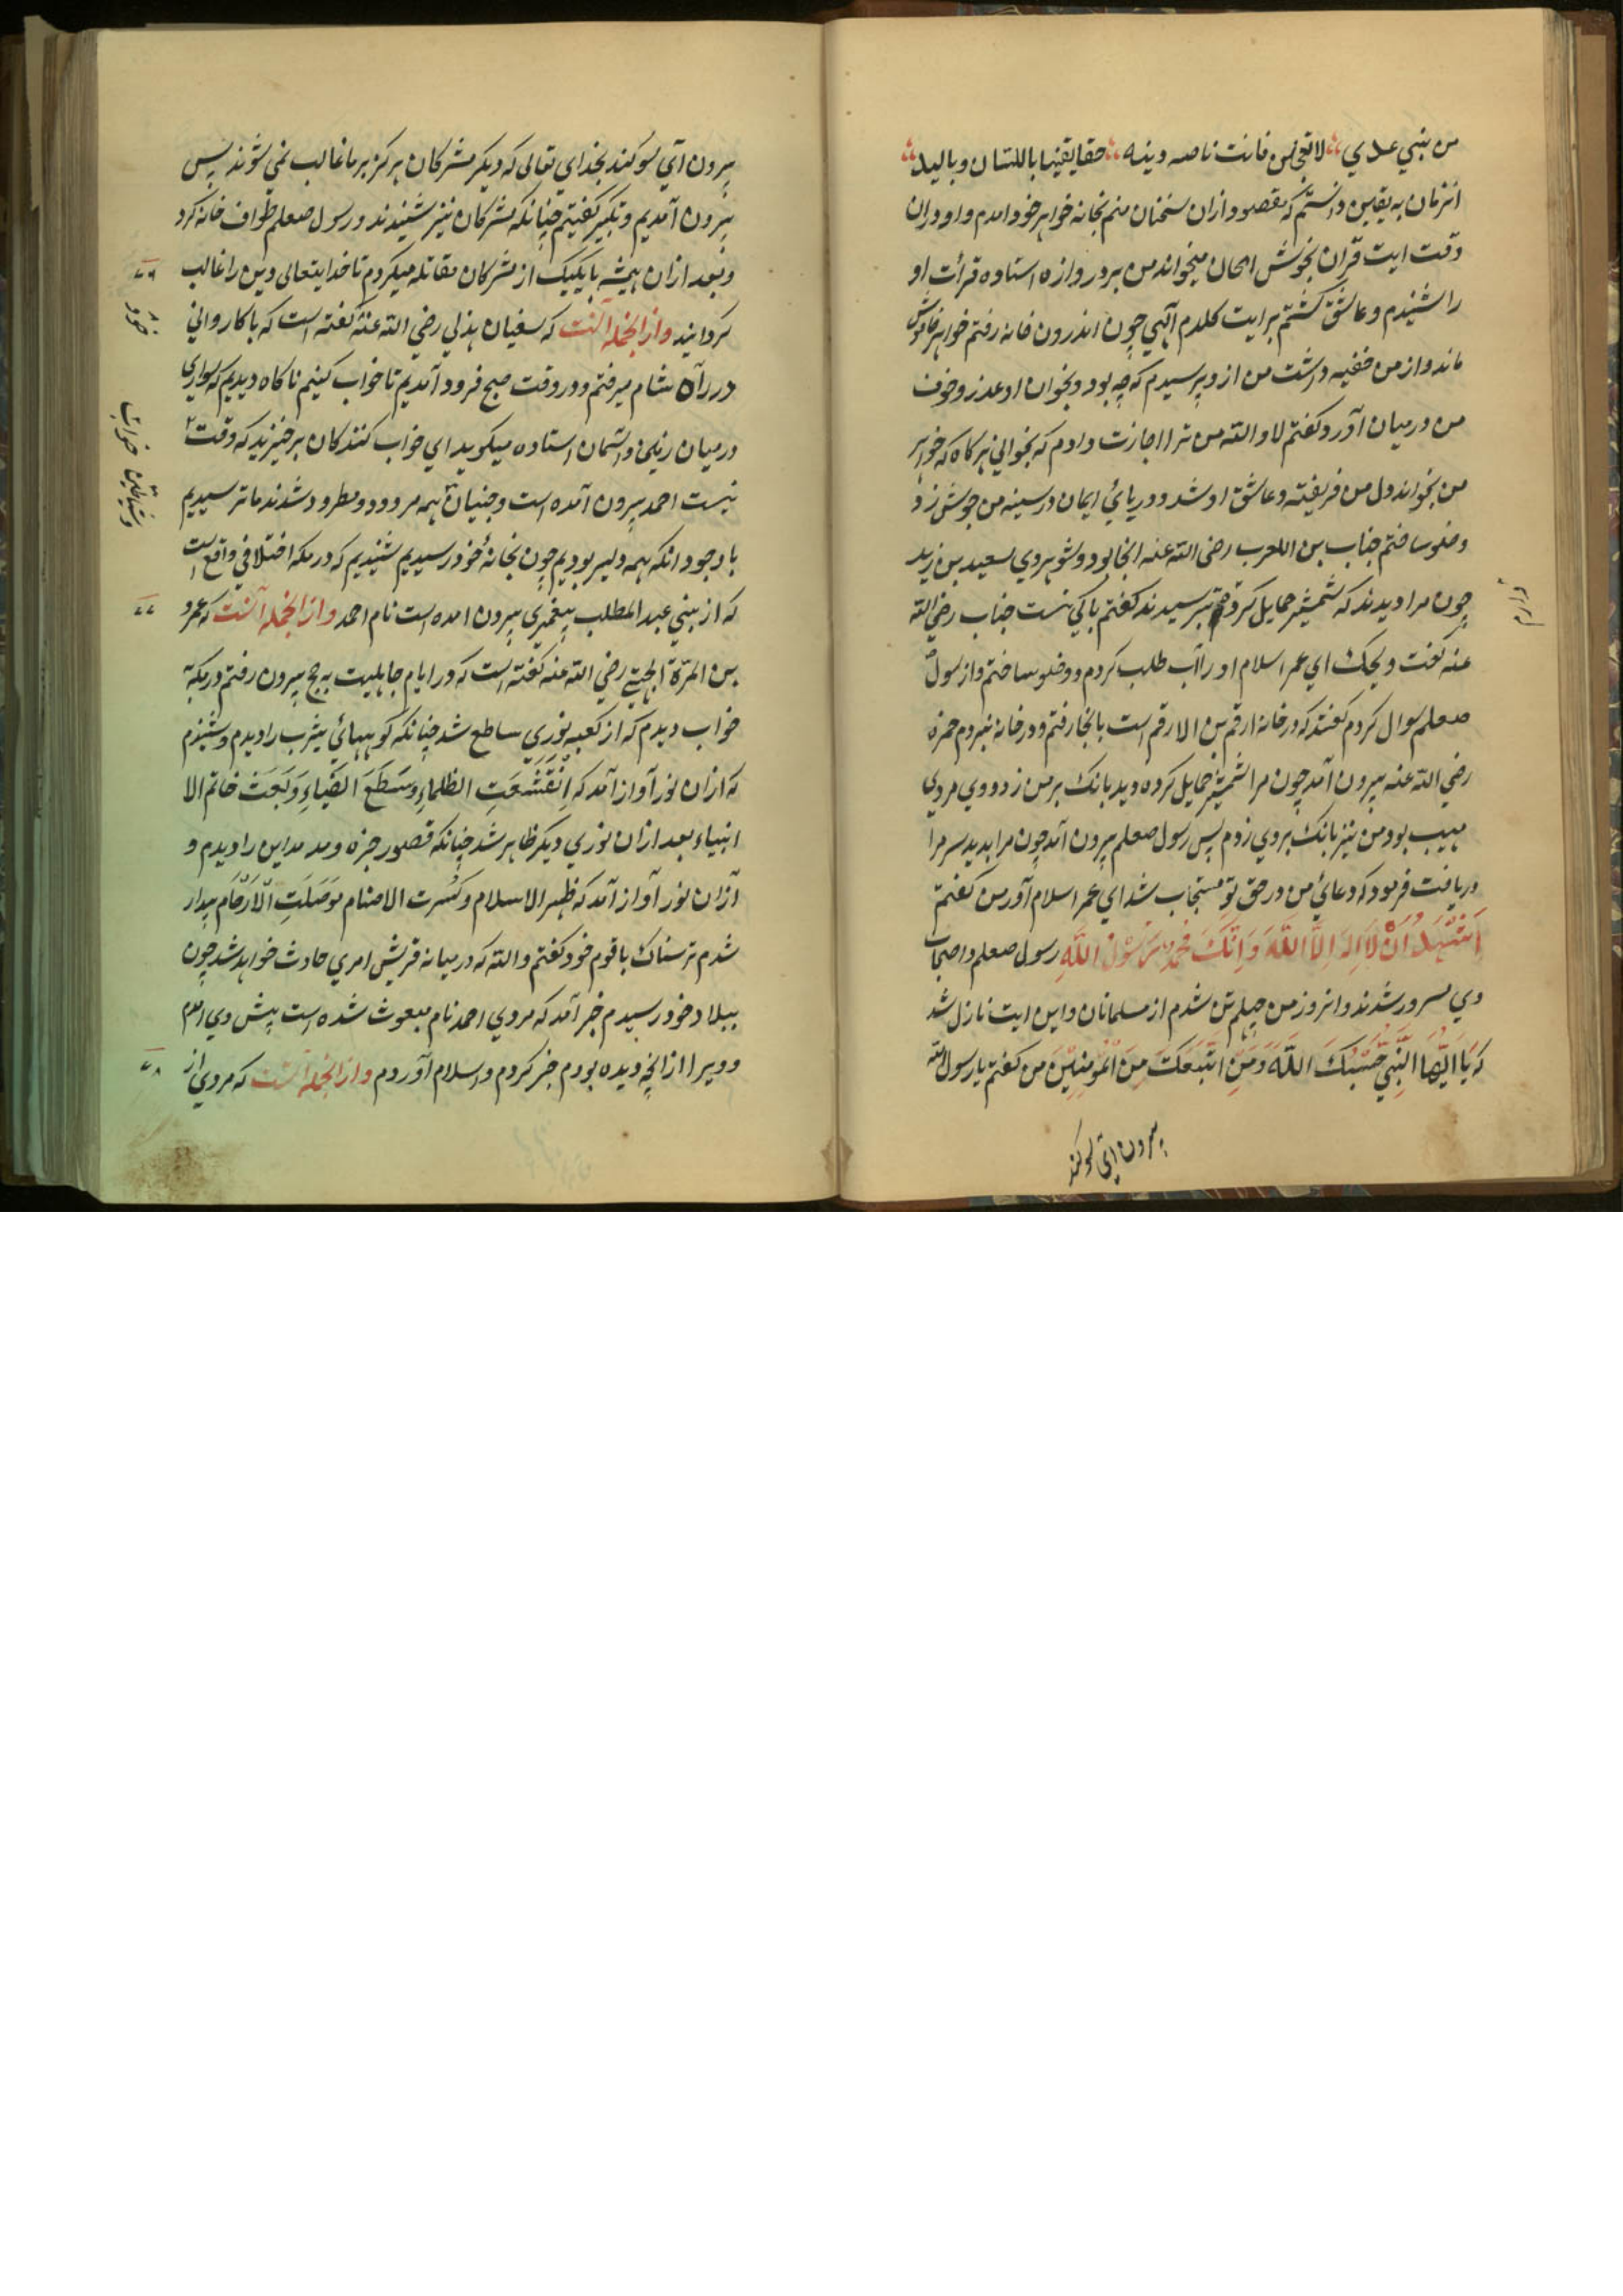 من بني عدي لا تعجلن فانت ناصر دينه حقا يقينا باللسان وباليد
انزمان به يقين دانستم که مقصود ازان سخنان منم بخانه خواهر خود امدم واو دران
وقت ايت قران بخوش الحان ميخواند من بر دروازه استاده قرأت او
را شنيدم وعاشق گشتم بر ايت کلام الهي چون اندرون خانه رفتم خواهر خاموش
ماند واز من خفيه داشت من از و پرسيدم که چه بود وبخوان او عذر وخوف
من درميان آورد گفتم لا والله من ترا اجازت دادم که بخواني هر کاه که خواهر
من بخواند دل من فريفته وعاشق او شد ودريائ ايمان در سينه من جوش زد
وضو ساختم جناب بن العرب رضى الله عنه انجا بود وشوهر وي سعيد بن زيد
چون مرا ديدند که شمشير حمايل کرده بترسيدند گفتم باکي نيست جناب رضي الله
عنه گفت ويحک اي عمر اسلام اور را آب طلب کردم ووضو ساختم واز رسول
صعلم سوال کردم گفتند که در خانه ارقم بن الارقم است بانجا رفتم ودر خانه بزدم حمزه
رضي الله عنه بيرون آمد چون مرا شمشير حمايل کرده ديد بانک بر من زد ووي مردي
مهيب بود من نيز بانک بر وي زدم پس رسول صعلم بيرون آمد چون مرا بديد سر مرا
دريافت فرمود که دعائ من در حق تو مستجاب شد اي عمر اسلام آور من گفتم
اَشْهَدُ اَنْ لَا اِلهَ اِلَّا اللّٰهَ وَاَنَّكَ مُحَمَّدٌ رَسُوْلُ اللّٰهِ رسول صعلم واصحاب
وي مسرور شدند وانروز من چهلم تن شدم از مسلمانان واين ايت نازل شد
که يَا اَيُّهَا النَّبِيُّ حَسْبُكَ اللّٰهُ وَمَنِ اتَّبَعَكَ مِنَ الْمُؤمِنِيْنَ من گفتم يا رسول الله
بيرون اي سوکند
بيرون آي سوکند بخداي تعالى که ديکر مشرکان هرکز بر ما غالب نمي شوند پس
بيرون آمديم وتکبير گفتيم چنانکه مشرکان نيز شنيدند ورسول صعلم طواف خانه کرد
وبعد ازان هميشه با يکيک از مشرکان مقاتله ميکردم تا خدايتعالى دين را غالب
٧٦
کردانيد واز انجمله آنست که سفيان هذلي رضي الله عنه گفته است که با کارواني
خود
در راه شام ميرفتم ودر وقت صبح فرود آمديم تا خواب کنيم ناکاه ديديم که سواري
در ميان زمين واسمان استاده ميکويد اي خواب کنندکان برخيزيد که وقت
خواب
نيست احمد بيرون آمده است وجنيان همه مردود ومطرود شدند ما ترسيديم
با وجود انکه همه دلير بوديم چون بخانهٔ خود رسيديم شنيديم که در مکه اختلافي واقع است
که از بني عبد المطلب پيغمبري بيرون امده است نام احمد واز انجمله آنست که عمرو
٧٧
بن المرّة الجهني رضي الله عنه گفته است که در ايام جاهليت به حج بيرون رفتم در مکه
خواب ديدم که از کعبه نوري ساطع شد چنانکه کوههائ يثرب را ديدم وشنيدم
که ازان نور آواز آمد که اِنْقَشَعَتِ الظلماءِ وَسَطَعَ الضّياءِ وَبَعَثَ خاتم الا
انبياء بعد ازان نوري ديکر ظاهر شد چنانکه قصور حيره ومد مداين را ديدم و
ازان نور آواز آمد که ظهر الاسلام وکسرت الاصنام وَوَصَلَتِ الْاَرْحَام بيدار
شدم ترسناک با قوم خود گفتم والله که درميانه قريش امري حادث خواهد شد چون
ببلاد خود رسيدم خبر آمد که مردي احمد نام مبعوث شده است پيش وي امدم
وويرا از انچه ديده بودم خبر کردم واسلام آوردم واز انجمله آنست که مردي از
٧٨